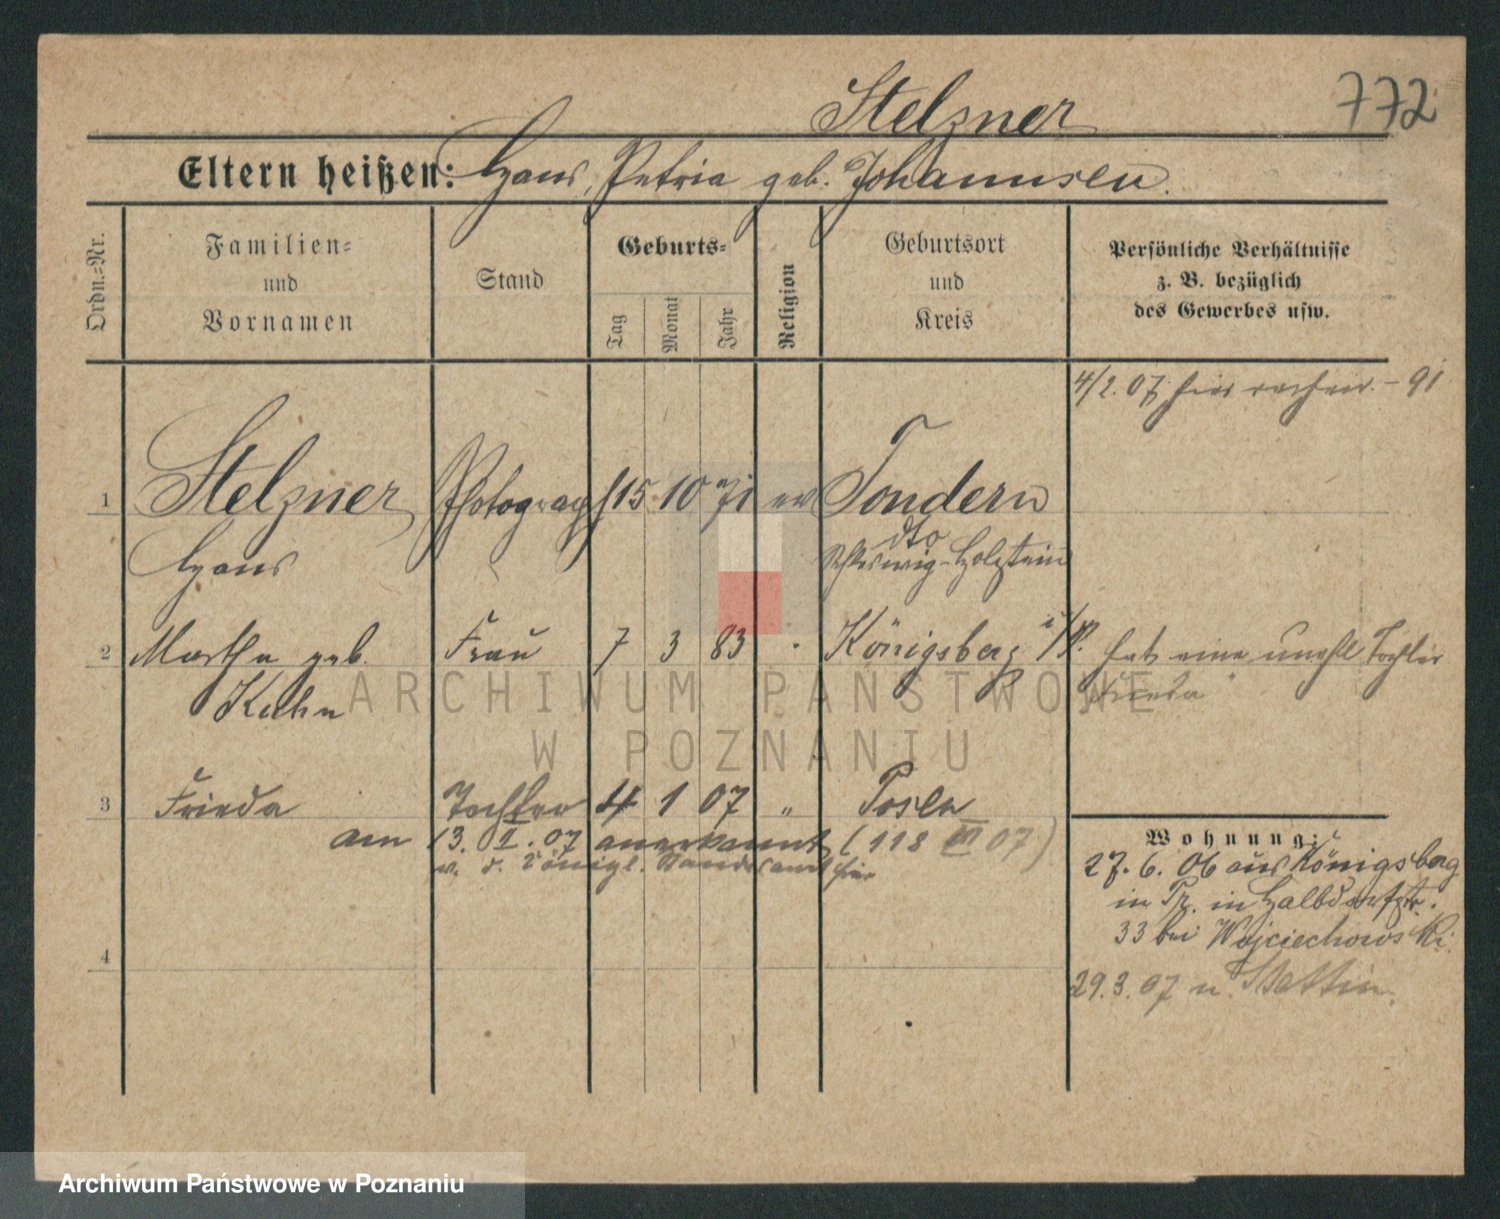 772
Stelzner
Eltern heißen: Hans, Petria geb. Johannsen.
Ordn.=Nr.
Familien=
und
Vornamen
Stand
Geburts=
Tag
Monat
Jahr
Religion
Geburtsort
und
Kreis
Persönliche Verhältnisse
z. B. bezüglich
des Gewerbes usw.
4/2. 07 hier – 91
1 Stelzner Photograph 15 10 71 ev Tondern
Hans dto
Schleswig-Holstein
2 Martha geb. Frau 7 3 83 Königsberg i/P. hat eine unehl Tochter
Kuhn Frieda
3 Frieda Tochter 4 1 07 " Posen
am 13. II. 07 anerkannt (118 III 07)
v. d. königl. Standesamt hier
Wohnung:
27. 6. 06 aus Königsberg
in Pr. in Halbdorfstr.
33 bei Wojciechowski.
4
29. 3. 07 n. Stettin.
ARCHIWUM PAŃSTWOWE
W POZNANIU
Archiwum Państwowe w Poznaniu